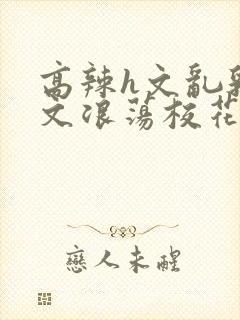 高辣h文乱乳
文浪荡校花
恋人未醒